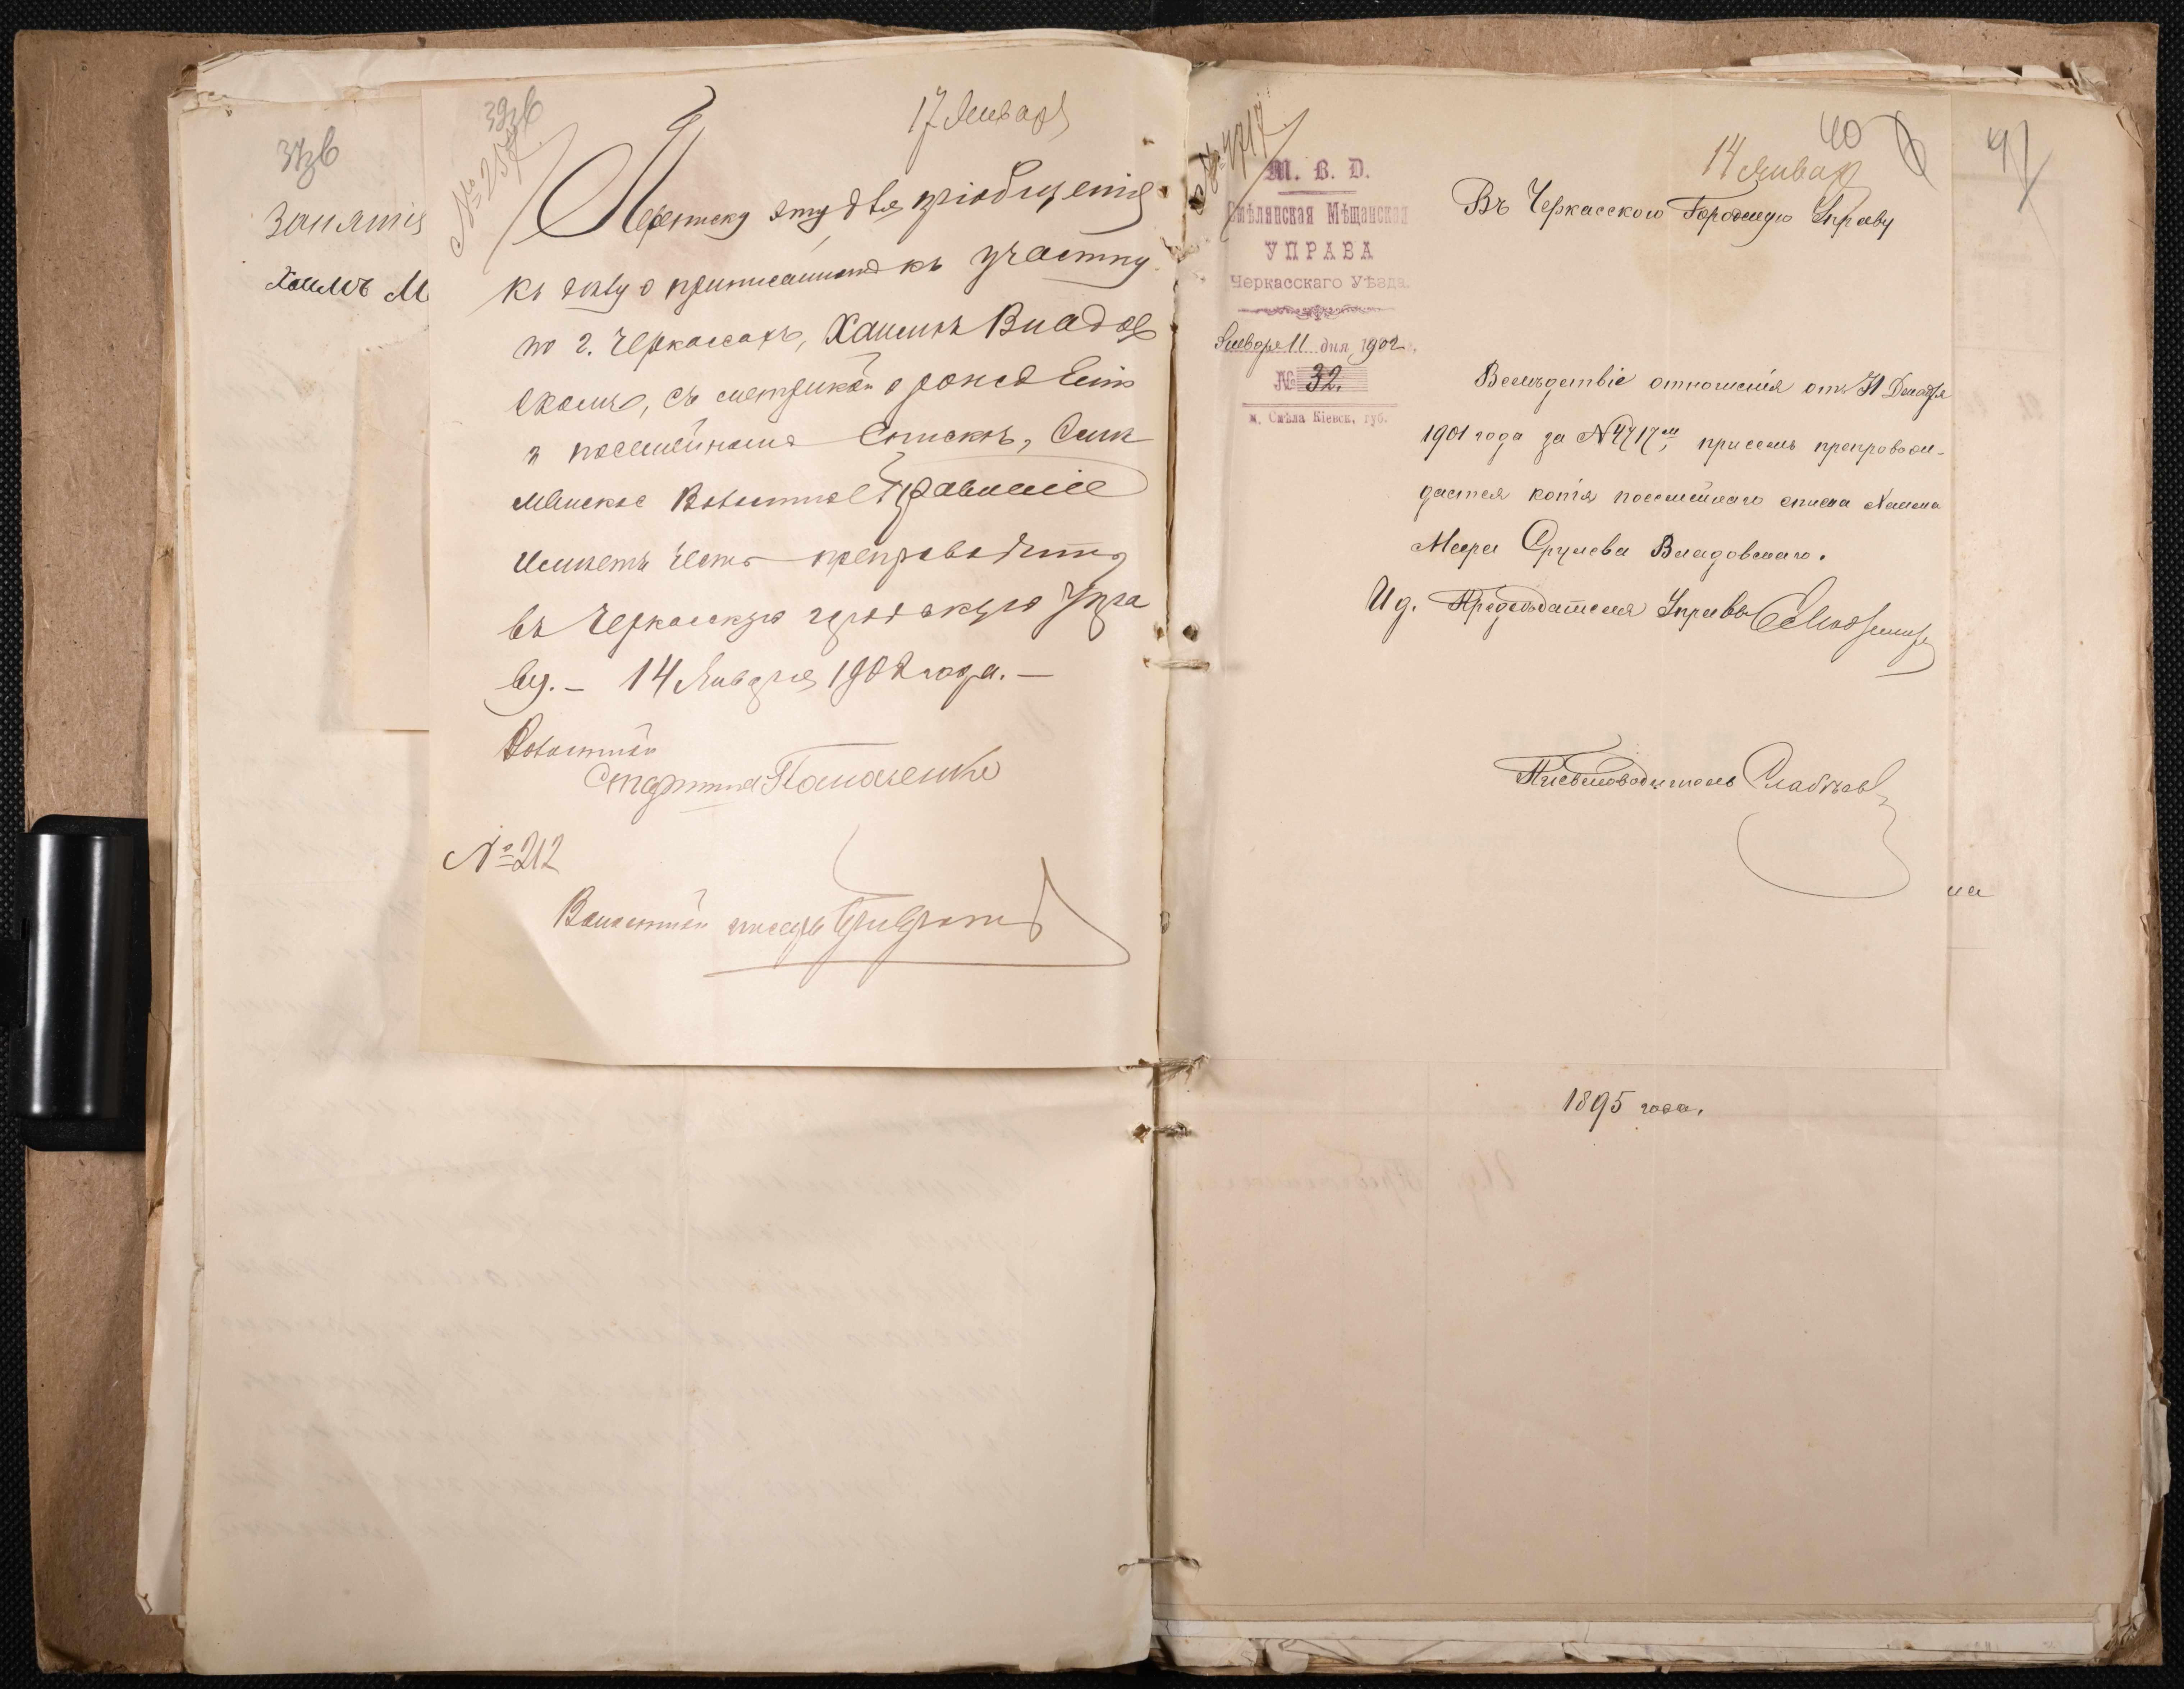 37об
Занятія
Хаимъ М
39об
№ 257
17 Января
Переписку эту для пріобщенія
къ делу о приписанномъ къ участку
по г. Черкассахъ, Хаимъ Владов
скомъ, съ метрикой о рожденіи
и посемейнымъ спискомъ, Смѣ
лянское Волостное Правленіе
имѣетъ честь препроводить
въ Черкасскую городскую Упра
ву. – 14 Января 1902 года. –
Волостной
Старшина Панасенко
№ 212
Волостной писарь
40
41
14 Января
№ 4717
М. В. Д.
Смѣлянская Мѣщанская
УПРАВА
Черкасскаго Уѣзда.
Января 11 дня 1902 г.
№ 32.
м. Смѣла Кіевск. губ.
Въ Черкасскою Городскую Управу
Вслѣдствіе отношенія отъ 31 Декабря
1901 года за № 4717, при семъ препровож-
дается копія посемейнаго списка Хаима
Меера Срулева Владовскаго.
И д. Предсѣдателя Управы
Письмоводитель
на
1895 года.